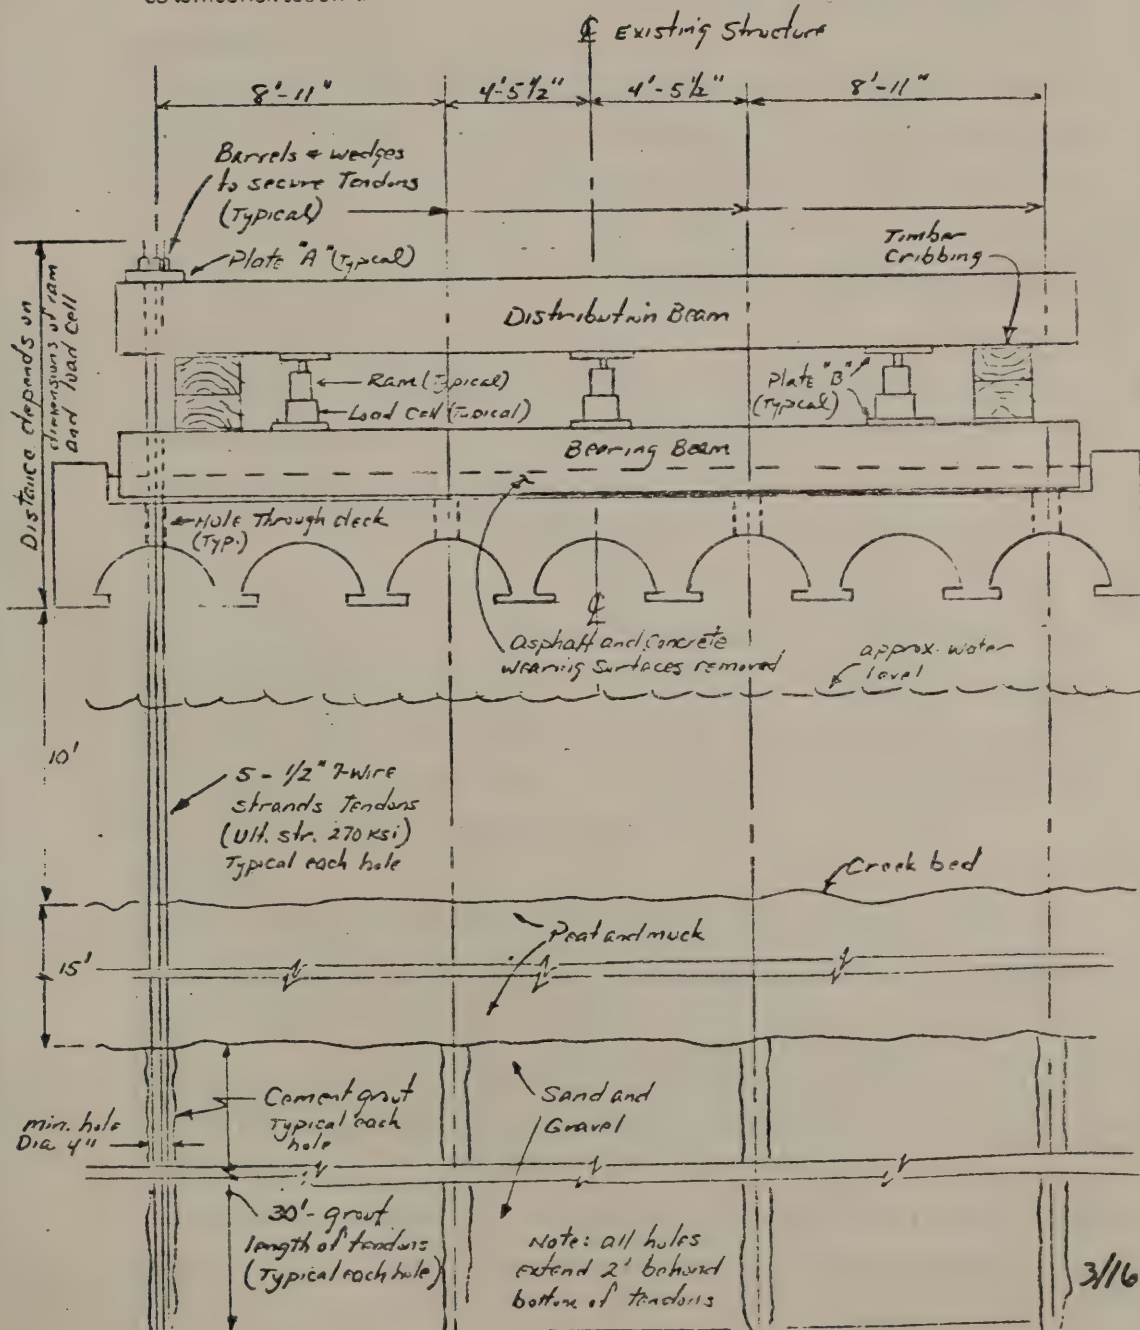 ℄ Existing Structure
8'-11"
4'-5 1/2"
4'-5 1/2"
8'-11"
Barrels & wedges
to secure Tendons
(Typical)
Plate "A" (Typical)
Timber
Cribbing
Distribution Beam
Distance depends on
dimensions of ram
and load cell
Ram (Typical)
Load Cell (Typical)
Plate "B"
(Typical)
Bearing Beam
Hole Through deck
(Typ.)
℄
Asphalt and Concrete
wearing surfaces removed
approx. water
level
10'
5 - 1/2" 7-wire
strands Tendons
(Ult. str. 270 ksi)
Typical each hole
Creek bed
Peat and muck
15'
Cement grout
Typical each
hole
Sand and
Gravel
min. hole
Dia. 4"
30'- grout
length of tendons
(Typical each hole)
Note: all holes
extend 2' behond
bottom of tendons
3/16